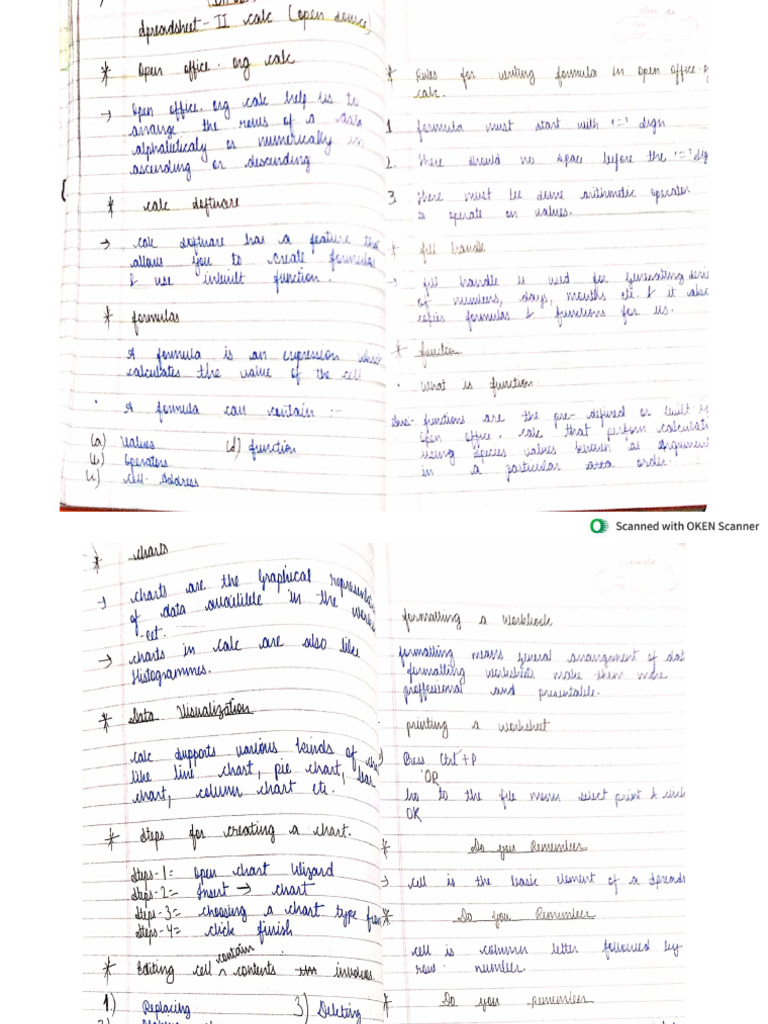 Spreadsheet-II calc (open source)
* Open office.org calc
→ Open office.org calc help us to
arrange the rows of a data
alphabeticaly or numerically in
ascending or descending
* calc software
→ calc software has a feature that
allows you to create formulas
& use inbuilt function.
* formulas
A formula is an expression which
calculates the value of the cell
• A formula can contain :-
(a) Values (d) function
(b) Operators
(c) Cell Address
* Rules for writing formula in open office.o
calc.
1 formula must start with '=' sign
2. There should no space before the '=' sig
3. There must be some arithmetic operator
to operate on values.
* fill handle
→ fill handle is used for generating seri
of numbers, days, months etc. & it also
copies formulas & functions for us.
* function
• What is function
Ans:- functions are the pre-defined or built i
open office. calc that perform calculati
using values known as argument
in a particular area order.
Scanned with OKEN Scanner
* charts
→ charts are the graphical represen
of data available in the works
eet.
→ charts in calc are also like
Histogrammes.
* Data Visualization
calc supports various kinds of cha
like line chart, pie chart, bar
chart, column chart etc.
* Steps for creating a chart.
Steps-1= Open chart Wizard
Steps-2= Insert → chart
Steps-3= choosing a chart type from
Steps-4= click finish
* Editing cell contain contents involves
1.) Replacing 3) Deleting
formatting a Workbook
formatting means general arrangement of dat
formatting worksheets make them more
proffessional and presentable.
printing a worksheet
Press Ctrl+P
OR
Go to the file menu select print & click
OK
* Do you Remember
→ cell is the basic element of a spreads
* Do you Remember
cell is column letter followed by
row number.
* Do you remember